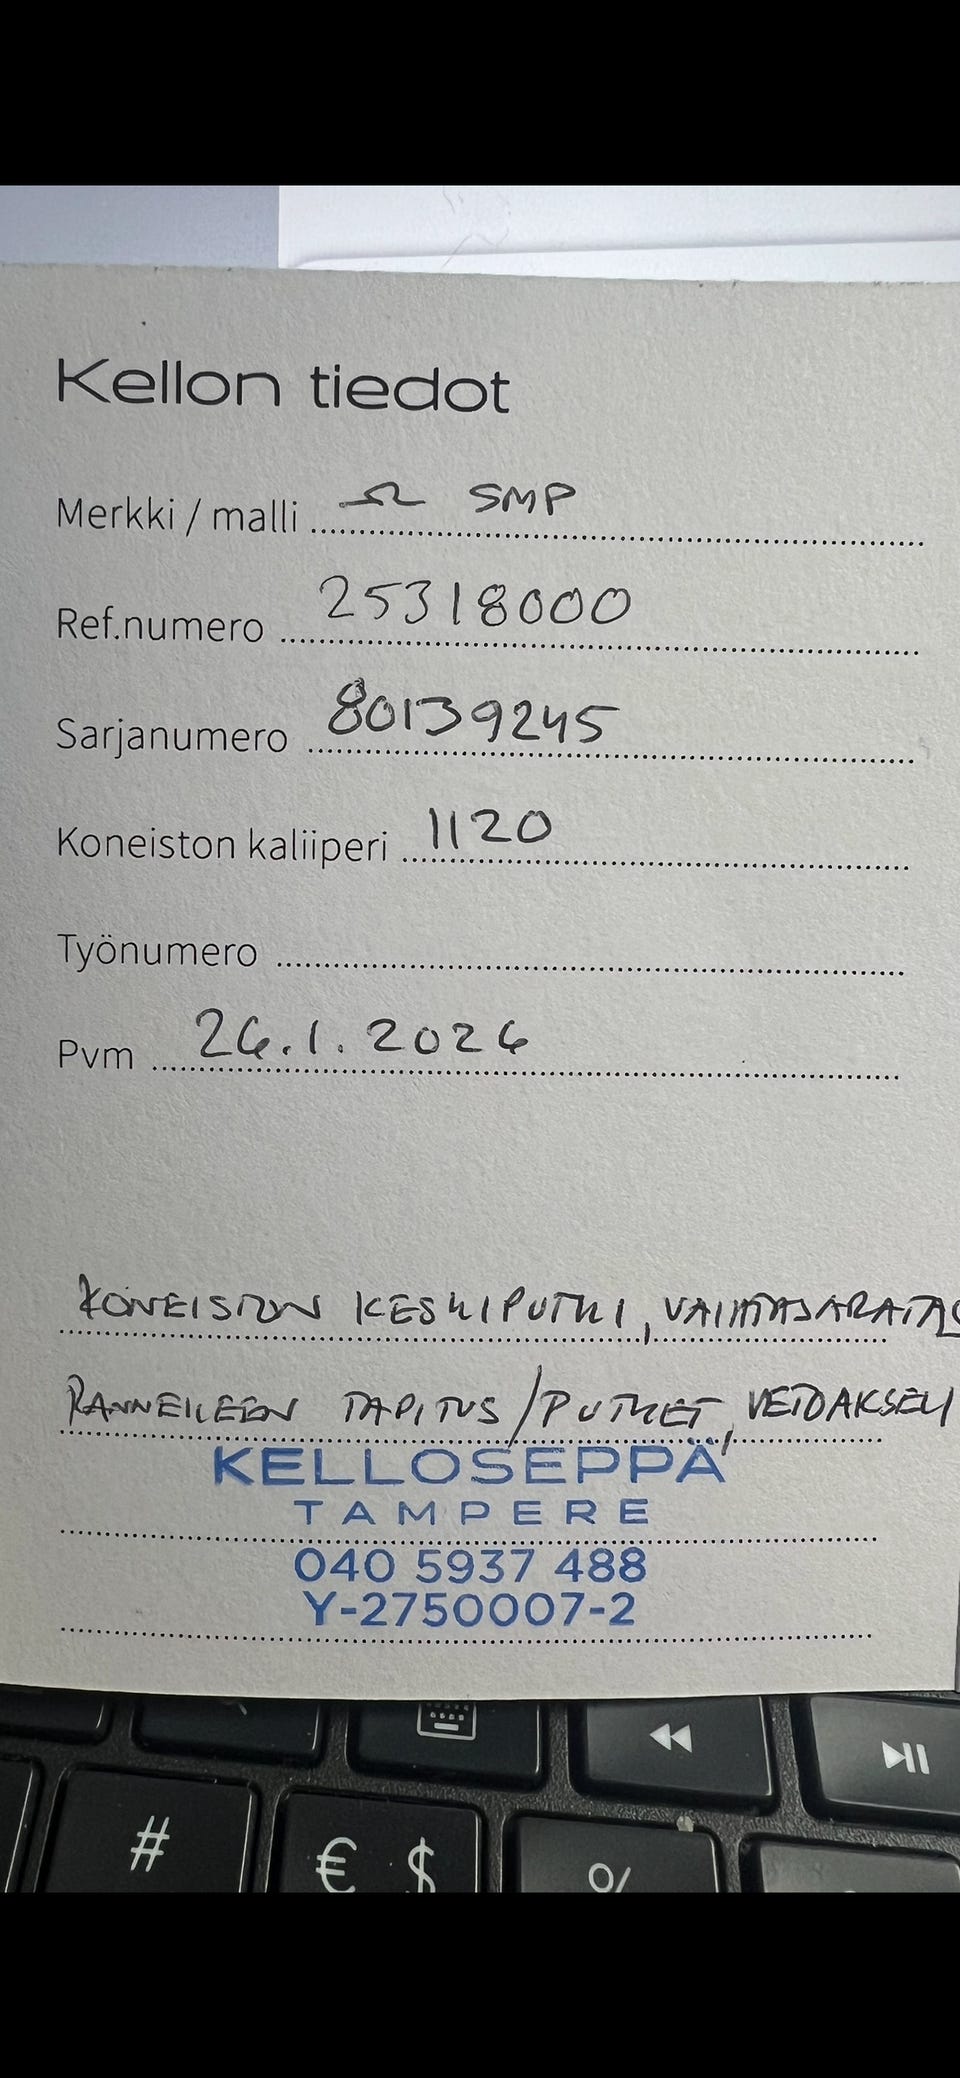 Kellon tiedot
Merkki / malli Ω SMP
Ref.numero 25318000
Sarjanumero 80139245
Koneiston kaliiperi 1120
Työnumero
Pvm 26.1.2026
KONEISTON KESKIPUTKI, VAIHTAJARATAS
RANNEKKEEN TAPITUS/PUTKET, VETOAKSELI
KELLOSEPPÄ
TAMPERE
040 5937 488
Y-2750007-2
#
€ $
%